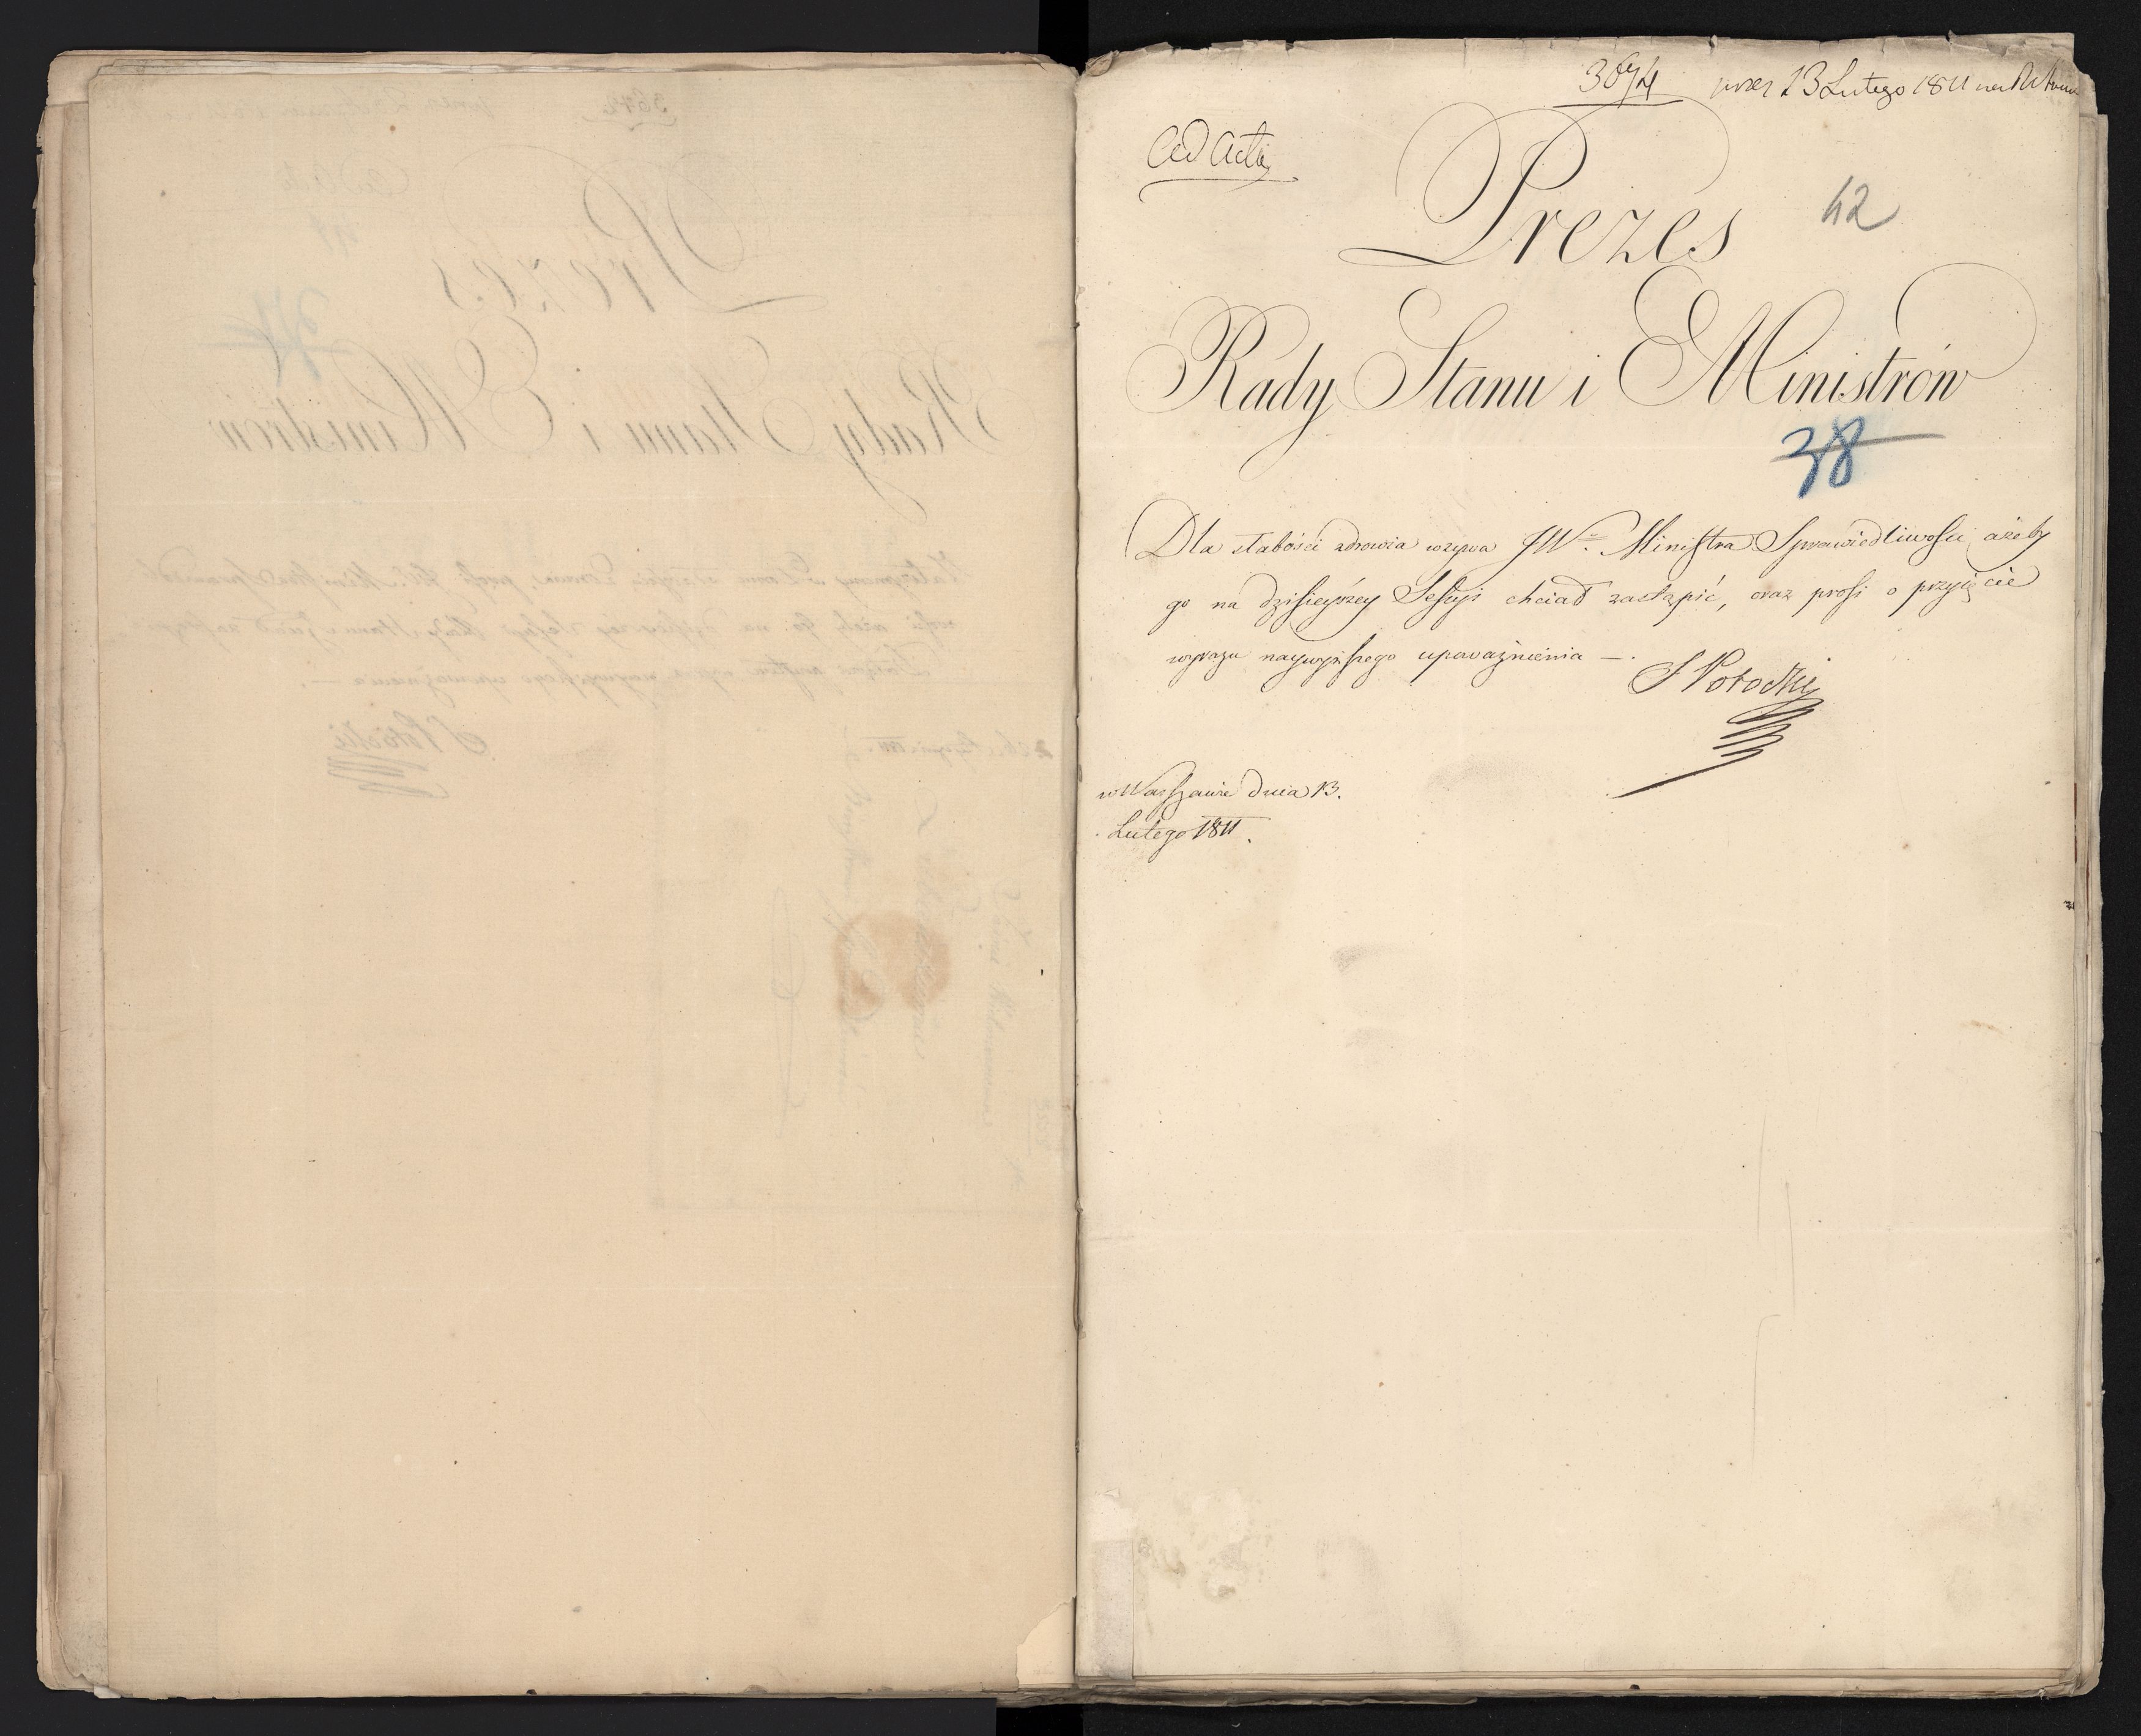 3674 praes 13 Lutego 1811 na
Ad Acta
Prezes
42
Rady Stanu i Ministrów
38
Dla słabości zdrowia wzywa JW. Ministra Sprawiedliwości ażeby
go na dzisieyszey Sessyi chciał zastąpić, oraz prosi o przyięcie
wyrazu naywyższego upoważnienia —.
S Potocki
w Warszawie dnia 13.
Lutego 1811.